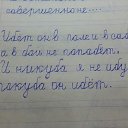 совершенноне....
Идёт он в поле и в сад
а в бой не попадёт.
И никуда я не иду
покуда он идёт.